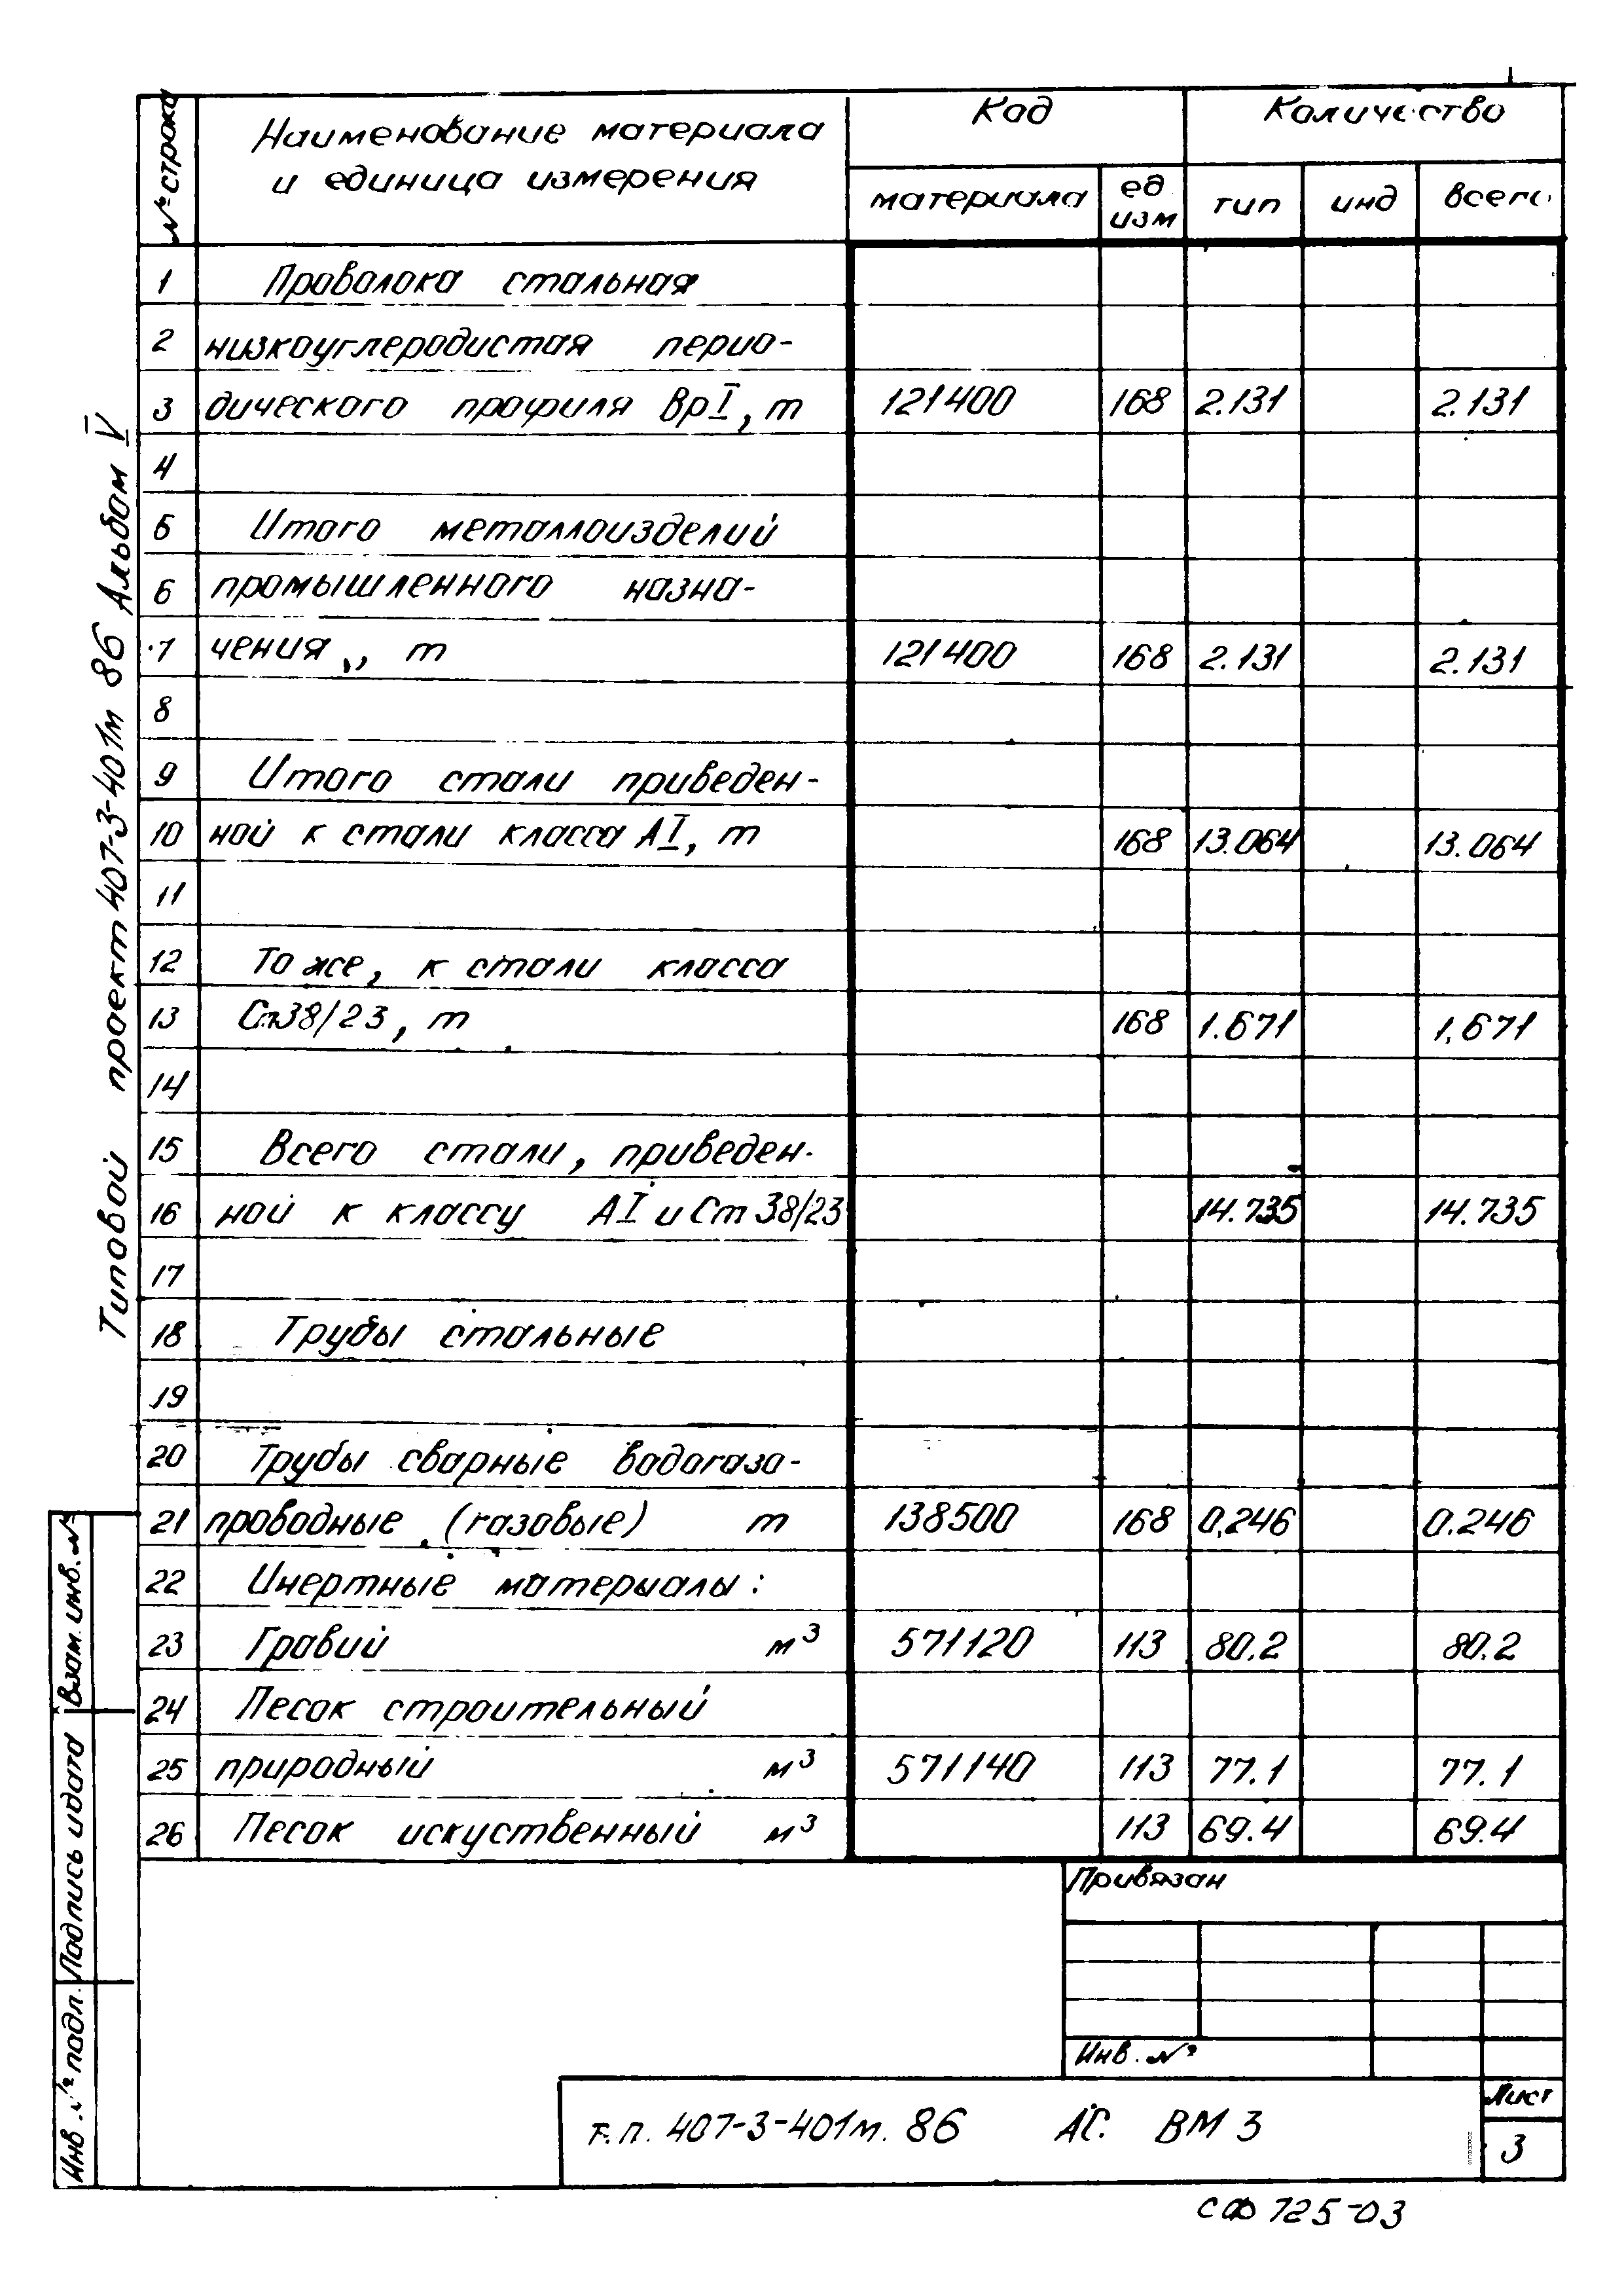 № строка
Наименование материала
и единица измерения
Код
Количество
материала
ед
изм
тип
инд
всего
1 Проволока стальная
2 низкоуглеродистая перио-
3 дического профиля ВрI, т 121400 168 2.131 2.131
4
5 Итого металлоизделий
6 промышленного назна-
7 чения,, т 121400 168 2.131 2.131
8
9 Итого стали приведен-
10 ной к стали класса АI, т 168 13.064 13.064
11
12 То же, к стали класса
13 Ст38/23, т 168 1.671 1,671
14
15 Всего стали, приведен-
16 ной к классу АI и Ст 38/23 14.735 14.735
17
18 Трубы стальные
19
20 Трубы сварные водогазо-
21 проводные (газовые) т 138500 168 0,246 0.246
22 Инертные материалы:
23 Гравий м³ 571120 113 80.2 80.2
24 Песок строительный
25 природный м³ 571140 113 77.1 77.1
26 Песок искуственный м³ 113 69.4 69.4
Типовой проект 407-3-401м 86 Альбом V
Взам. инв. №
Подпись и дата
Инв. № подл.
Привязан
Инв. №
т.п. 407-3-401м. 86 АС. ВМ 3
Лист
3
СФ 725-03